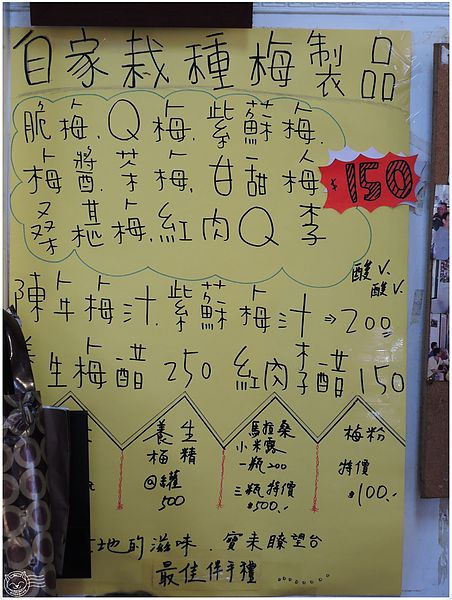 自家栽種梅製品
脆梅.Q梅.紫蘇梅.
梅醬.茶梅.甘甜梅
桑椹梅.紅肉Q李
$150
酸V.
酸V.
陳年梅汁.紫蘇梅汁⇒200
生梅醋 250 紅肉李醋 150
養生
梅精
@罐
500
馬拉桑
小米露
一瓶200
三瓶特價
$500..
梅粉
特價
$100..
地的滋味.寶來瞭望台
最佳伴手禮......